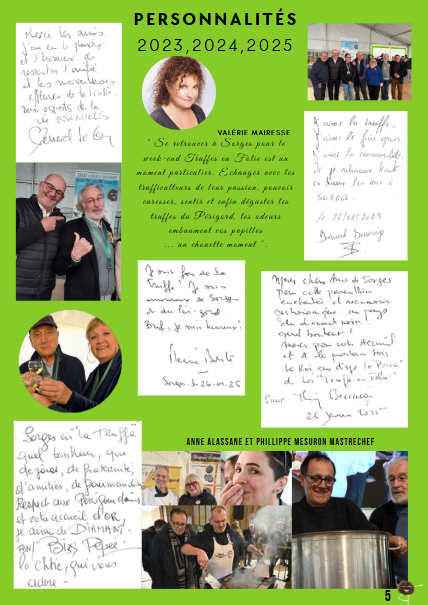 PERSONNALITÉS
2023,2024,2025
Merci les amis
J'ai eu le plaisir
et l'honneur de
ressentir l'amitié
et les merveilleux
de la
vie ESSENTIELS
VALÉRIE MAIRESSE
" Se retrouver à Sorges pour le
week-end Truffes en Folie est un
moment particulier. Echanger avec les
trufficulteurs de leur passion, pouvoir
caresser, sentir et enfin déguster les
truffes du Périgord, les odeurs
embaument vos papilles
... un chouette moment ".
J'aime la truffe,
J'aime le foie gras,
J'aime la convivialité
et je retrouve tout
ça tous les ans à
SORGES.
le 26/01/2025
Je suis fou de la
truffe ! Je suis
amoureux de Sorges
et du Périgord.
Bref, je suis heureux !
Sorges, le 26.01.25
Merci chers Amis de Sorges
pour cette parenthèse
enchantée et
gastronomique au pays
du diamant noir.
quel bonheur !
Merci pour votre Accueil
et A la prochaine fois
de La "Truffe en Folie"
26 Janvier 2025
Sorges en "La Truffe"
quel bonheur, que
de joies, de fraternité,
d'amitiés, de gourmandise
Respect aux Périgourdins
et votre accueil d'OR,
je dirai de DIAMANT.
le Chti, qui vous
adore -
ANNE ALASSANE ET PHILLIPPE MESURON MASTRECHEF
5